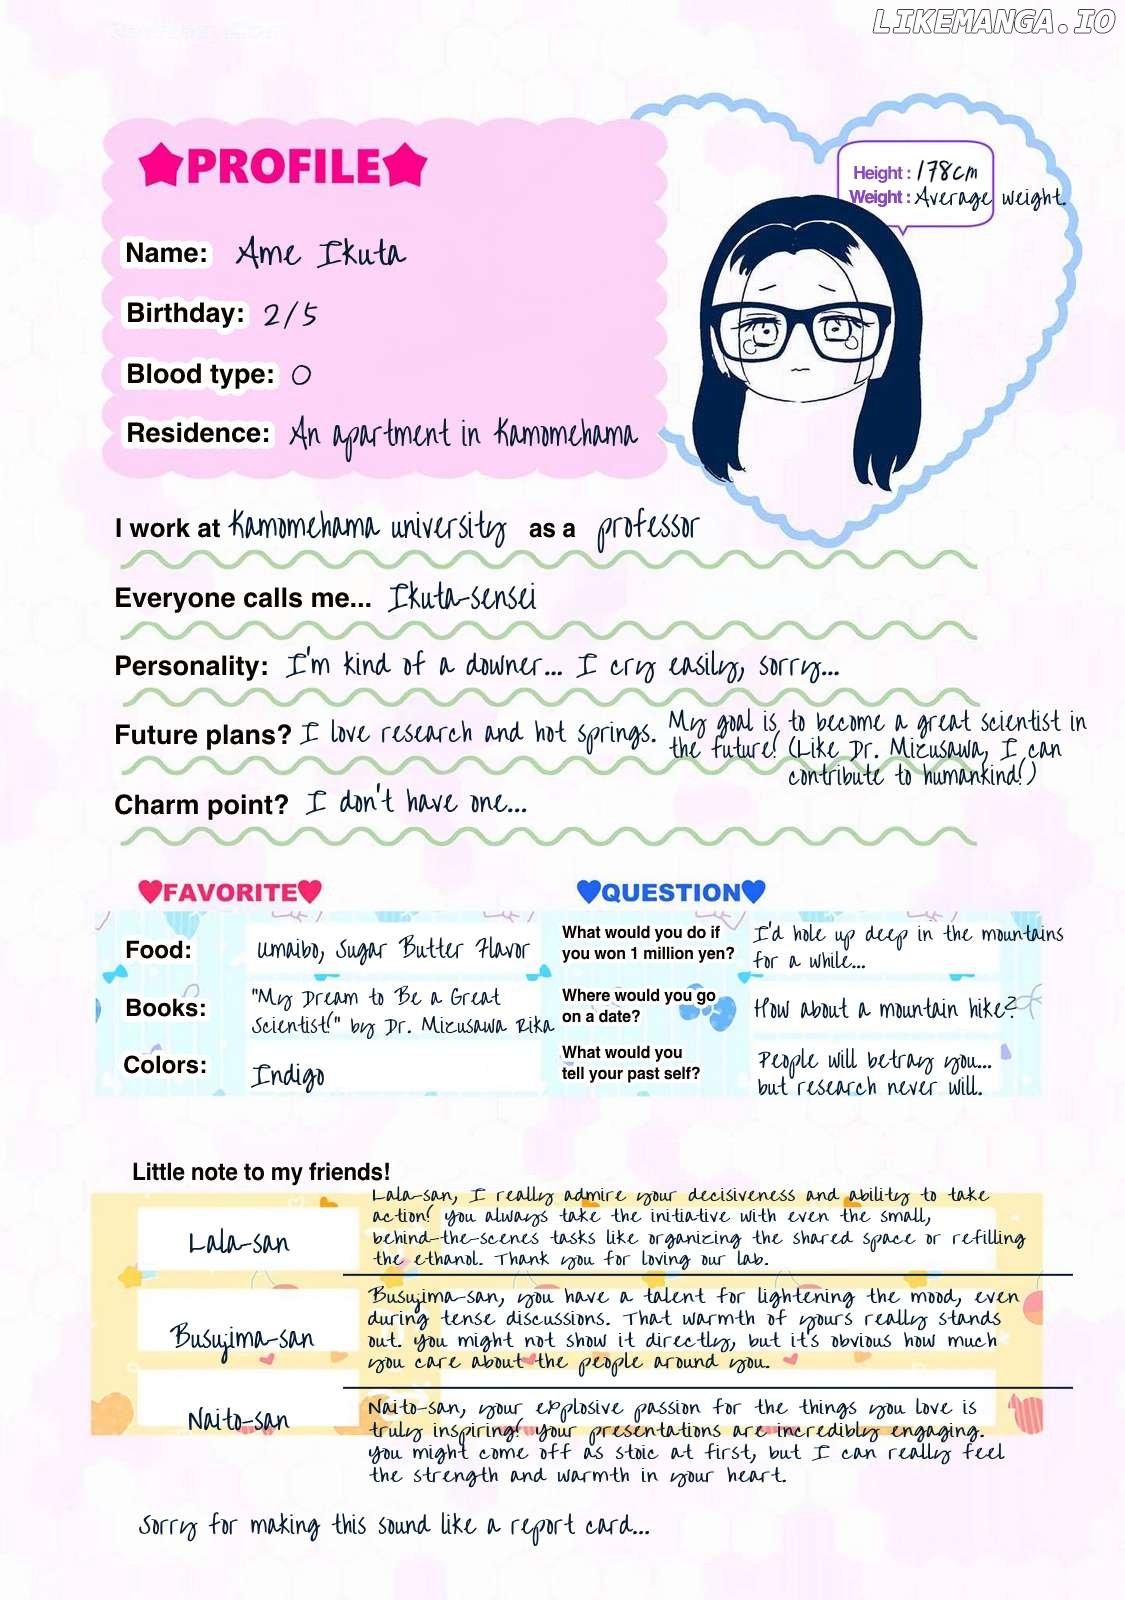 LIKEMANGA.IO
★PROFILE★
Height : 178cm
Weight : Average weight.
Name: Ame Ikuta
Birthday: 2/5
Blood type: O
Residence: An apartment in Kamomehama
I work at Kamomehama university as a professor
Everyone calls me... Ikuta-sensei
Personality: I'm kind of a downer... I cry easily, sorry...
Future plans? I love research and hot springs. My goal is to become a great scientist in
the future! (Like Dr. Mizusawa, I can
contribute to humankind!)
Charm point? I don't have one...
♥FAVORITE♥
Food: umaibo, Sugar Butter Flavor
Books: "My Dream to Be a Great
Scientist!" by Dr. Mizusawa Rika
Colors: Indigo
♥QUESTION♥
What would you do if
you won 1 million yen?
I'd hole up deep in the mountains
for a while...
Where would you go
on a date?
How about a mountain hike?
What would you
tell your past self?
People will betray you...
but research never will.
Little note to my friends!
Lala-san
Lala-san, I really admire your decisiveness and ability to take
action! You always take the initiative with even the small,
behind-the-scenes tasks like organizing the shared space or refilling
the ethanol. Thank you for loving our lab.
Busujima-san
Busujima-san, you have a talent for lightening the mood, even
during tense discussions. That warmth of yours really stands
out. You might not show it directly, but it's obvious how much
you care about the people around you.
Naito-san
Naito-san, your explosive passion for the things you love is
truly inspiring! Your presentations are incredibly engaging.
You might come off as stoic at first, but I can really feel
the strength and warmth in your heart.
Sorry for making this sound like a report card...